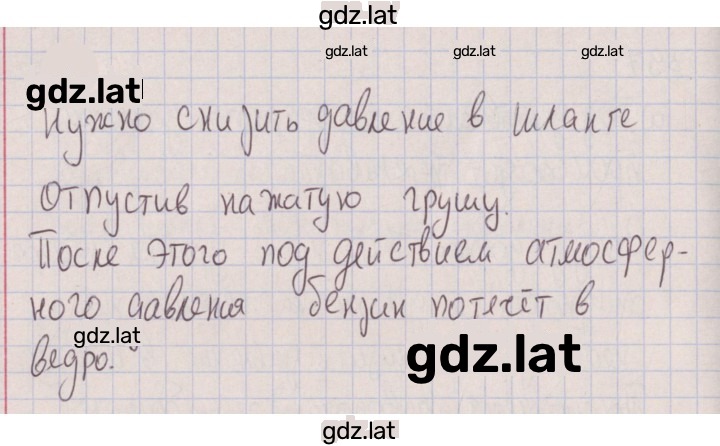 gdz.lat
gdz.lat gdz.lat gdz.lat
gdz.lat
Нужно снизить давление в шланге
Отпустив нажатую грушу.
После этого под действием атмосфер-
ного давления бензин потечёт в
gdz.lat
ведро.
gdz.lat
gdz.lat